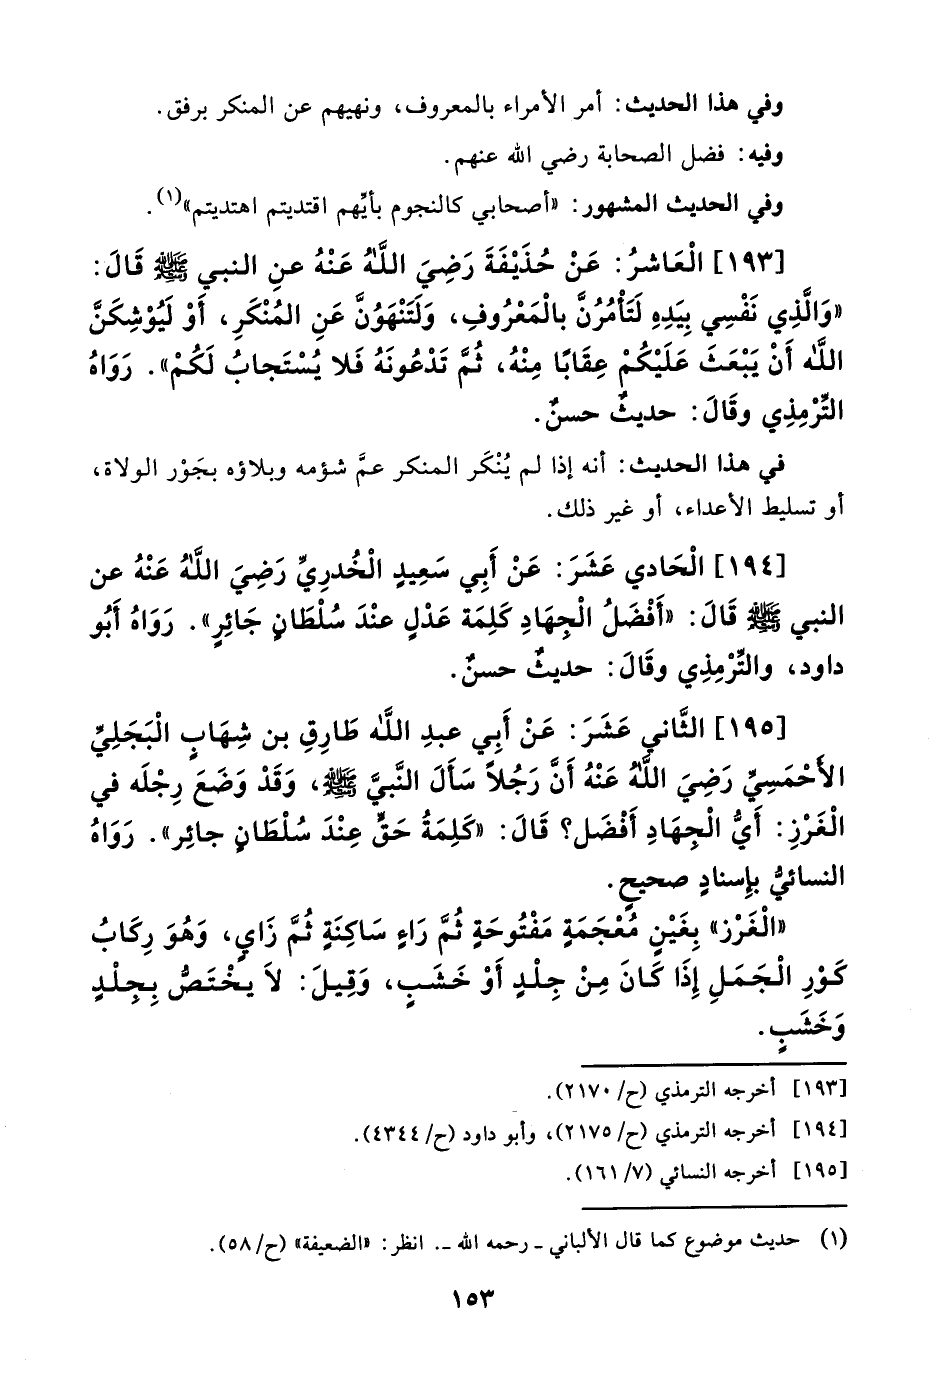 وفي هذا الحديث: أمر الأمراء بالمعروف، ونهيهم عن المنكر برفق.
وفيه: فضل الصحابة رضي الله عنهم.
وفي الحديث المشهور: «أصحابي كالنجوم بأيِّهم اقتديتم اهتديتم»(١).
[١٩٣] الْعَاشرُ: عَنْ حُذَيْفَةَ رَضِيَ اللَّهُ عَنْهُ عنِ النبي ﷺ قَالَ:
«وَالَّذِي نَفْسِي بِيَدِهِ لَتَأْمُرُنَّ بالْمَعْرُوفِ، وَلَتَنْهَوُنَّ عَنِ المُنْكَرِ، أَوْ لَيُوْشِكَنَّ
اللَّه أَنْ يَبْعَثَ عَلَيْكُمْ عِقَابًا مِنْهُ، ثُمَّ تَدْعُونَهُ فَلا يُسْتَجابُ لَكُمْ». رَوَاهُ
التِّرْمِذِي وقَالَ: حديثٌ حسنٌ.
في هذا الحديث: أنه إذا لم يُنْكَر المنكر عمَّ شؤمه وبلاؤه بجَوْر الولاة،
أو تسليط الأعداء، أو غير ذلك.
[١٩٤] الْحَادي عَشَرَ: عَنْ أَبِي سَعِيدٍ الْخُدرِيِّ رَضِيَ اللَّهُ عَنْهُ عن
النبي ﷺ قَالَ: «أَفْضَلُ الْجِهَادِ كَلِمَة عَدْلٍ عندَ سُلْطَانٍ جَائِرٍ». رَوَاهُ أَبُو
داود، والتِّرْمِذِي وقَالَ: حديثٌ حسنٌ.
[١٩٥] الثَّاني عَشَرَ: عَنْ أَبِي عبدِ اللَّه طَارِقِ بن شِهَابٍ الْبَجَلِيِّ
الأَحْمَسِيِّ رَضِيَ اللَّهُ عَنْهُ أَنَّ رَجُلاً سَأَلَ النَّبيَّ ﷺ، وَقَدْ وَضَعَ رِجْلَه في
الْغَرْزِ: أَيُّ الْجِهَادِ أَفْضَل؟ قَالَ: «كَلِمَةُ حَقٍّ عِنْدَ سُلْطَانٍ جائِر». رَوَاهُ
النسائيُّ بإِسنادٍ صحيحٍ.
«الْغَرْز» بِغَيْنٍ مُعْجَمَةٍ مَفْتُوحَةٍ ثُمَّ رَاءٍ سَاكِنَةٍ ثُمَّ زَايٍ، وَهُوَ رِكَابُ
كَوْرِ الْجَمَلِ إِذَا كَانَ مِنْ جِلْدٍ أَوْ خَشَبٍ، وَقِيلَ: لاَ يخْتَصُّ بِجِلْدٍ
وَخَشَبٍ.
[١٩٣] أخرجه الترمذي (ح/ ٢١٧٠).
[١٩٤] أخرجه الترمذي (ح/ ٢١٧٥)، وأبو داود (ح/ ٤٣٤٤).
[١٩٥] أخرجه النسائي (٧/ ١٦١).
(١) حديث موضوع كما قال الألباني ـ رحمه الله ـ. انظر: «الضعيفة» (ح/ ٥٨).
١٥٣